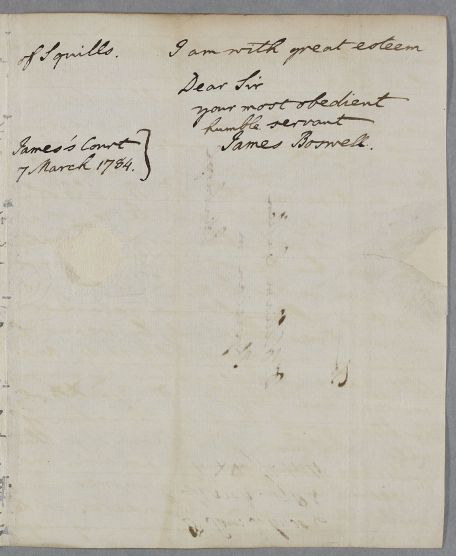 of Squills. I am with great esteem
Dear Sir
your most obedient
humble servant
James Boswell.
James's Court
7 March 1784.